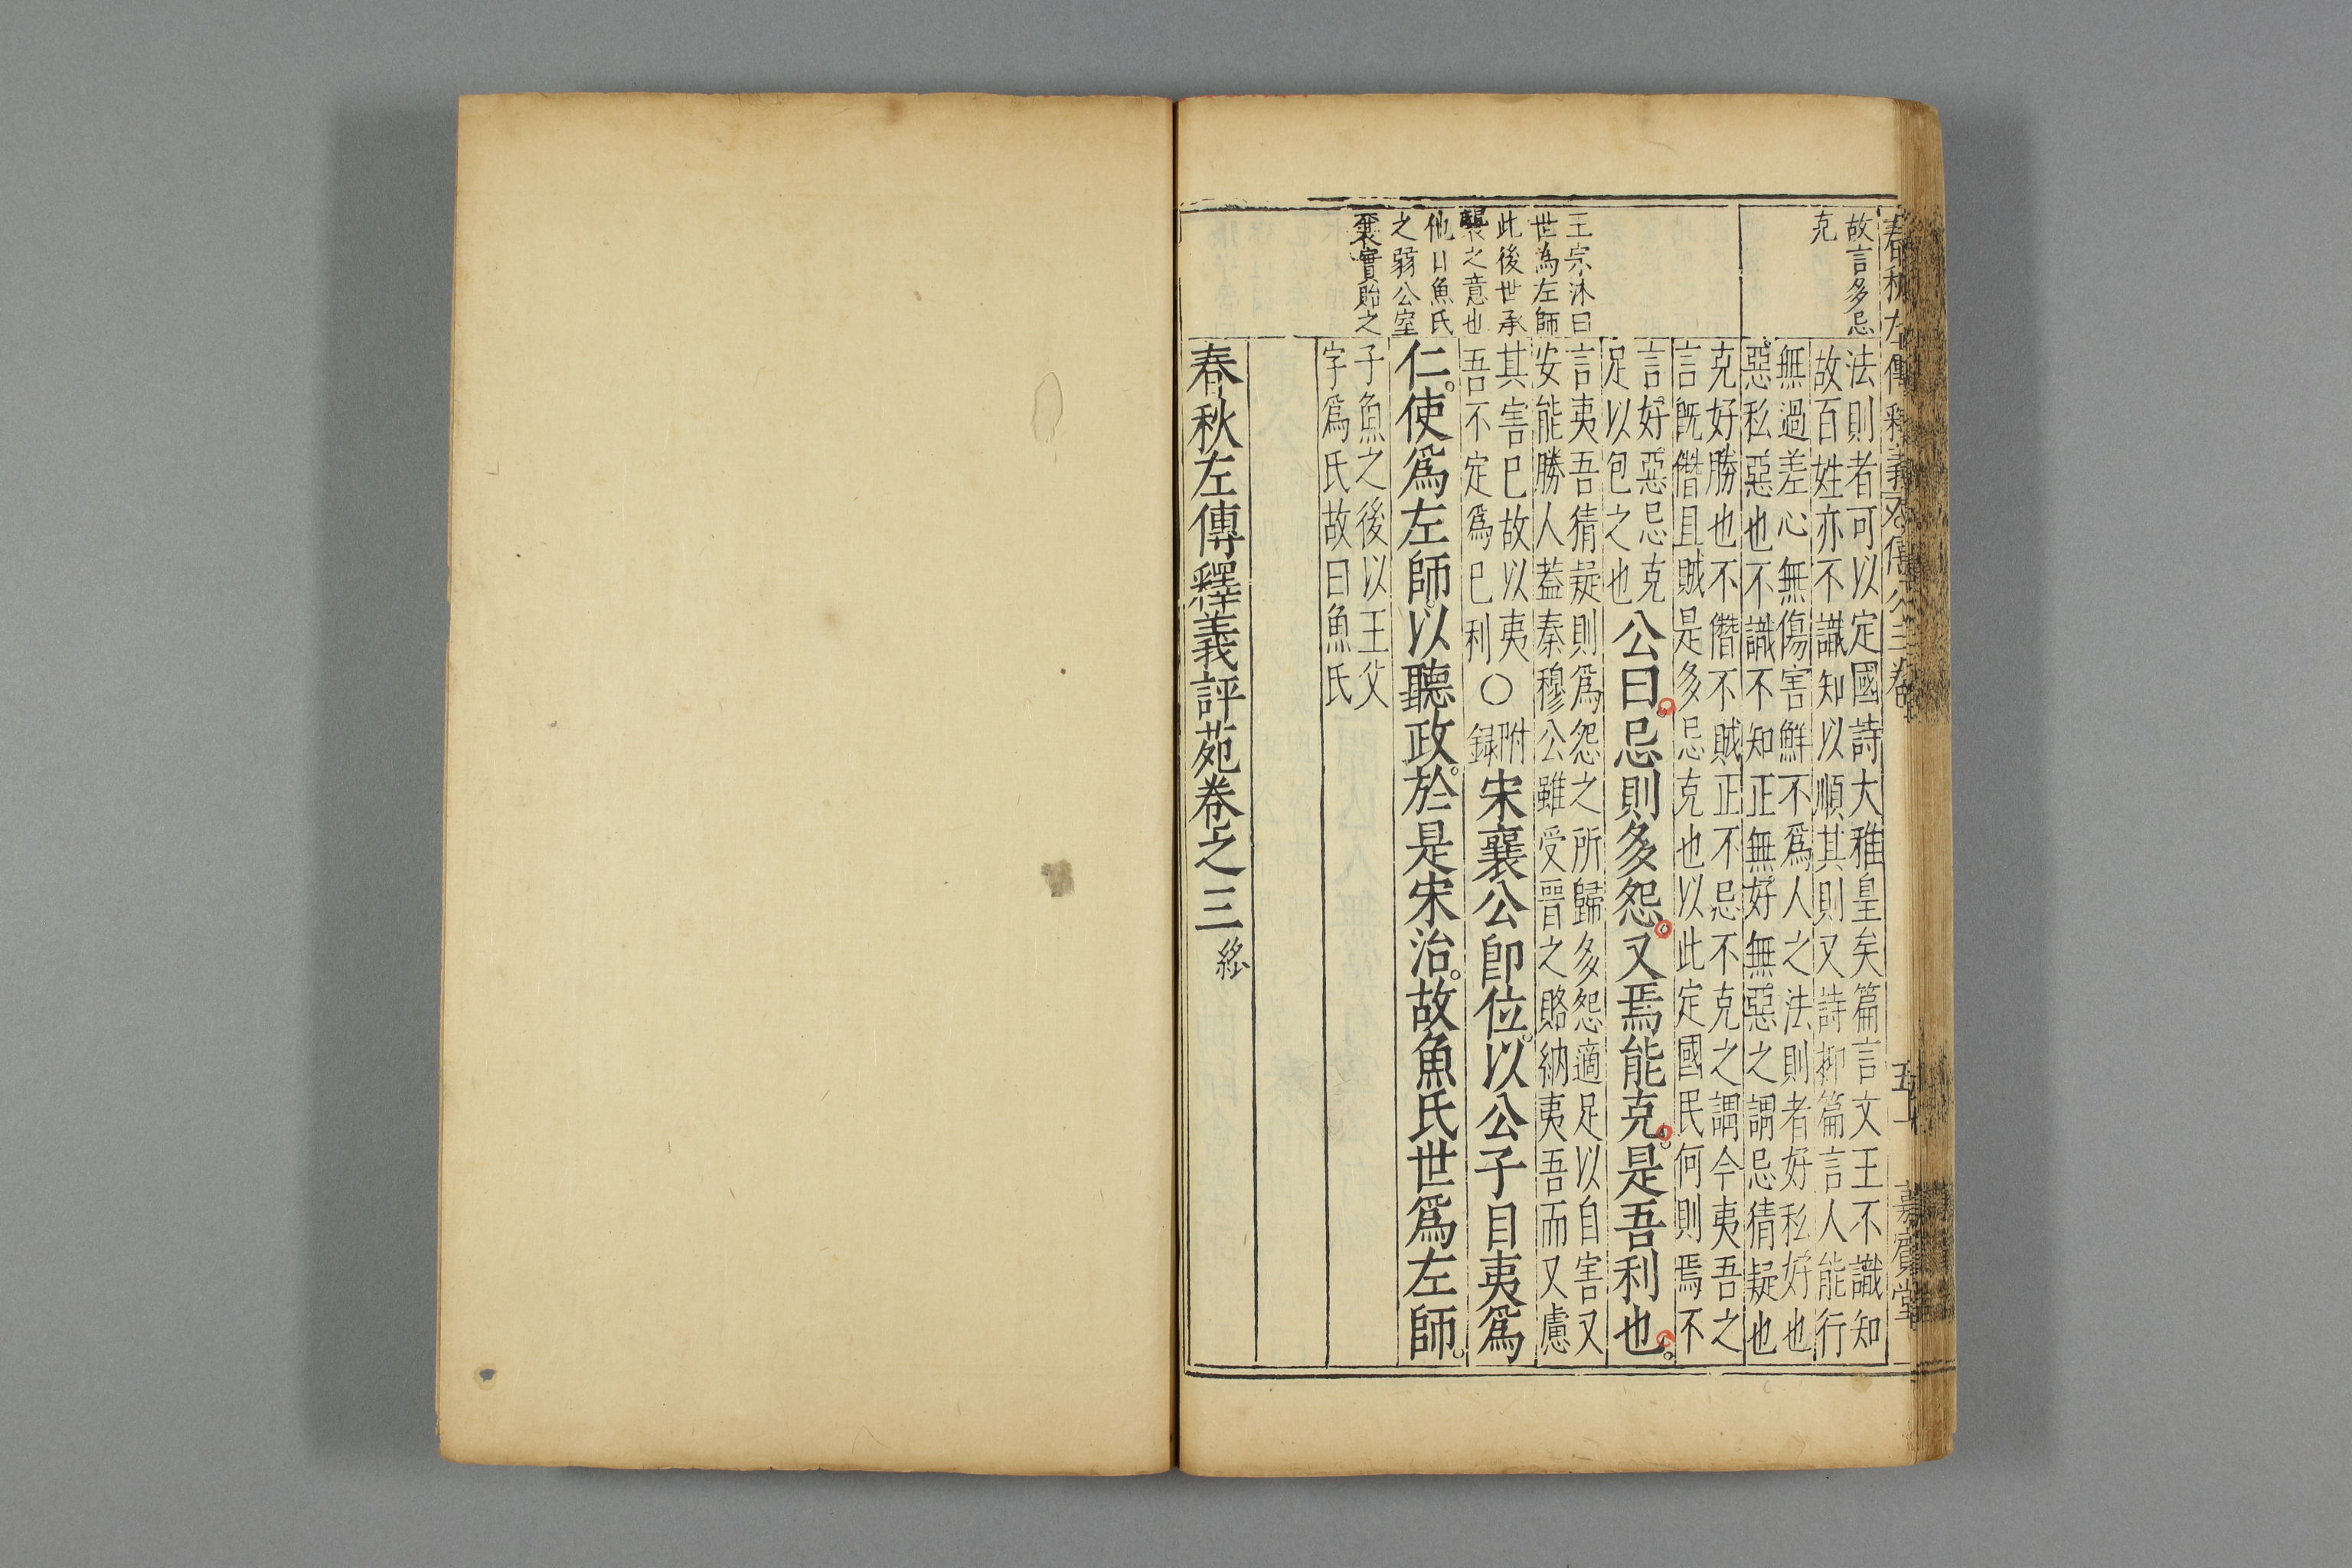 春秋左傳釋義 僖公三卷 五十 嘉賓堂
故言多忌
克
王宗沐曰
世為左師
此後世承
襲之意也
他日魚氏
之弱公室
襄實貽之
法則者可以定國詩大雅皇矣篇言文王不識知
故百姓亦不識知以順其則又詩抑篇言人能行
無過差心無傷害鮮不爲人之法則者好私好也
惡私惡也不識不知正無好無惡之謂忌猜疑也
克好勝也不僭不賊正不忌不克之謂今夷吾之
言旣僭且賊是多忌克也以此定國民何則焉不
言好惡忌克
足以包之也
公曰忌則多怨又焉能克是吾利也
言夷吾猜疑則爲怨之所歸多怨適足以自害又
安能勝人蓋秦穆公雖受晉之賂納夷吾而又慮
其害巳故以夷
吾不定爲巳利
○
附
録
宋襄公卽位以公子目夷爲
仁使爲左師以聽政於是宋治故魚氏世爲左師
子魚之後以王父
字爲氏故曰魚氏
春秋左傳釋義評苑卷之三 終